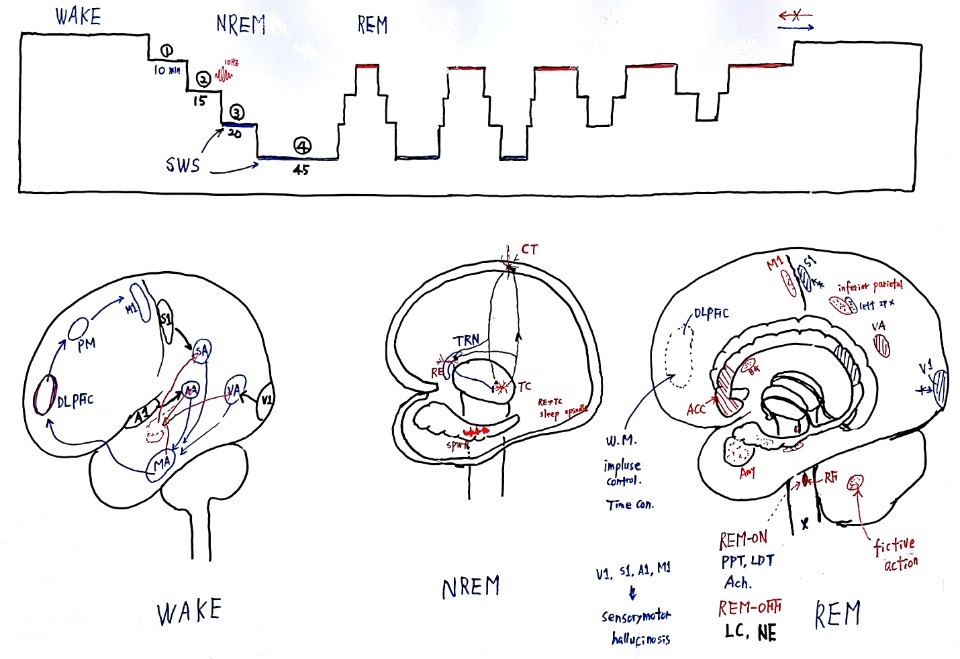 WAKE
NREM
REM
①
10 min
②
10Hz
15
③
20
SWS
④
45
M1
S1
PM
SA
DLPFC
A1
AA
VA
V1
MA
WAKE
CT
TRN
RE
TC
RE⇄TC
sleep spindle
NREM
M1
S1
inferior parietal
left
DLPFC
VA
V1
ACC
W.M.
impluse
control.
Time con.
Amy
RF
fictive
action
REM-ON
PPT, LDT
Ach.
REM-OFF
LC, NE
V1, S1, A1, M1
sensorymotor
hallucinosis
REM